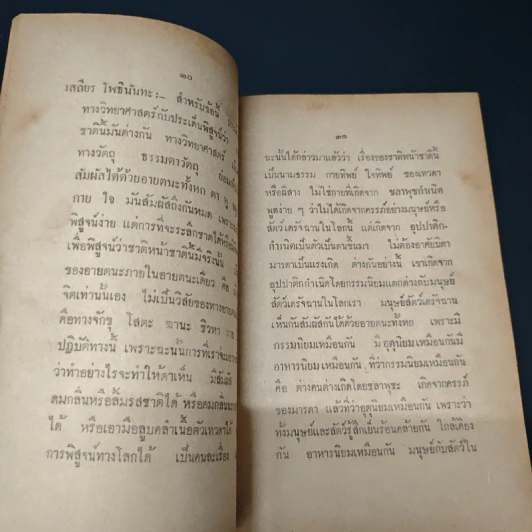 ๓๐
เสถียร โพธินันทะ:- สำหรับข้อนี้
ทางวิทยาศาสตร์กับประเด็นพิสูจน์ว่า
ชาตินี้มันต่างกัน ทางวิทยาศาสตร์
ทางวัตถุ ธรรมดาวัตถุ ย่อม
สัมผัสได้ด้วยอายตนะทั้งหก ตา หู
กาย ใจ มันสัมผัสถึงกันหมด เพราะ
พิสูจน์ง่าย แต่การที่จะระลึกชาติได้
เพื่อพิสูจน์ว่าชาติหน้าชาตินี้มีจริงนั้น
ของอายตนะภายในอายตนะเดียว คือ
จิตเท่านั้นเอง ไม่เป็นวิสัยของทางอายตนะ
คือทางจักขุ โสตะ ฆานะ ชิวหา กาย
ปฏิบัติทางนี้ เพราะฉะนั้นการที่เราจะ
ว่าทำอย่างไรจะทำให้ตาเห็น มีสัมผัส
ดมกลิ่นหรือลิ้มรสชาติได้ หรือดมกลิ่น
ได้ หรือเอามือลูบคลำเนื้อตัวเทวดาได้
การพิสูจน์ทางโลกได้ เป็นคนละเรื่อง
๓๑
ฉะนั้นได้กล่าวมาแล้วว่า เรื่องของชาติหน้าชาตินี้
เป็นนามธรรม กายทิพย์ ใจทิพย์ ของเทวดา
หรือผีสาง ไม่ใช่กายที่เกิดจาก ชลาพุชกำเนิด
พูดง่าย ๆ ว่าไม่ได้เกิดจากครรภ์อย่างมนุษย์หรือ
สัตว์เดรัจฉานในโลกนี้ แต่เกิดจาก อุปปาติก-
กำเนิดเป็นตัวเป็นตนขึ้นมา ไม่ต้องอาศัยบิดา
มารดาเป็นแรงเกิด ต่างกันอย่างนี้ เขาเกิดจาก
อุปปาติกกำเนิดโดยกรรมนิยมแตกต่างกับมนุษย์
สัตว์เดรัจฉานในโลกเรา มนุษย์สัตว์เดรัจฉาน
เห็นกันสัมผัสกันได้ด้วยอายตนะทั้งหก เพราะมี
กรรมนิยมเหมือนกัน มีอุตุนิยมเหมือนกันมี
อาหารนิยมเหมือนกัน ที่ว่ากรรมนิยมเหมือนกัน
คือ ต่างคนต่างเกิดโดยชลาพุชะ เกิดจากครรภ์
ของมารดา แล้วที่ว่าอุตุนิยมเหมือนกัน เพราะว่า
ทั้งมนุษย์และสัตว์รู้สึกเย็นร้อนคล้ายกัน ใกล้เคียง
กัน อาหารนิยมเหมือนกัน มนุษย์กับสัตว์ใน